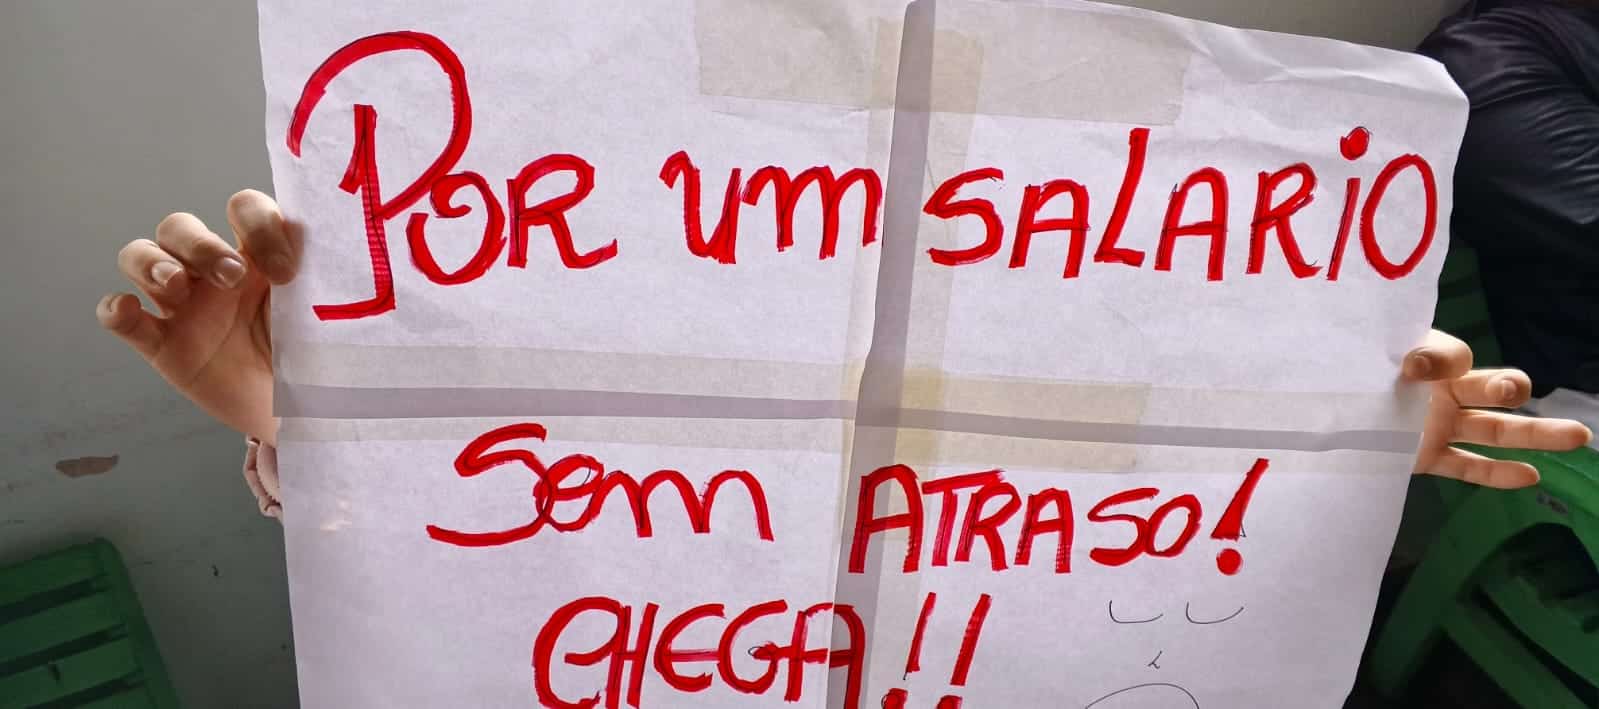 POR UM SALARIO
Sem ATRASO!
CHEGA!!